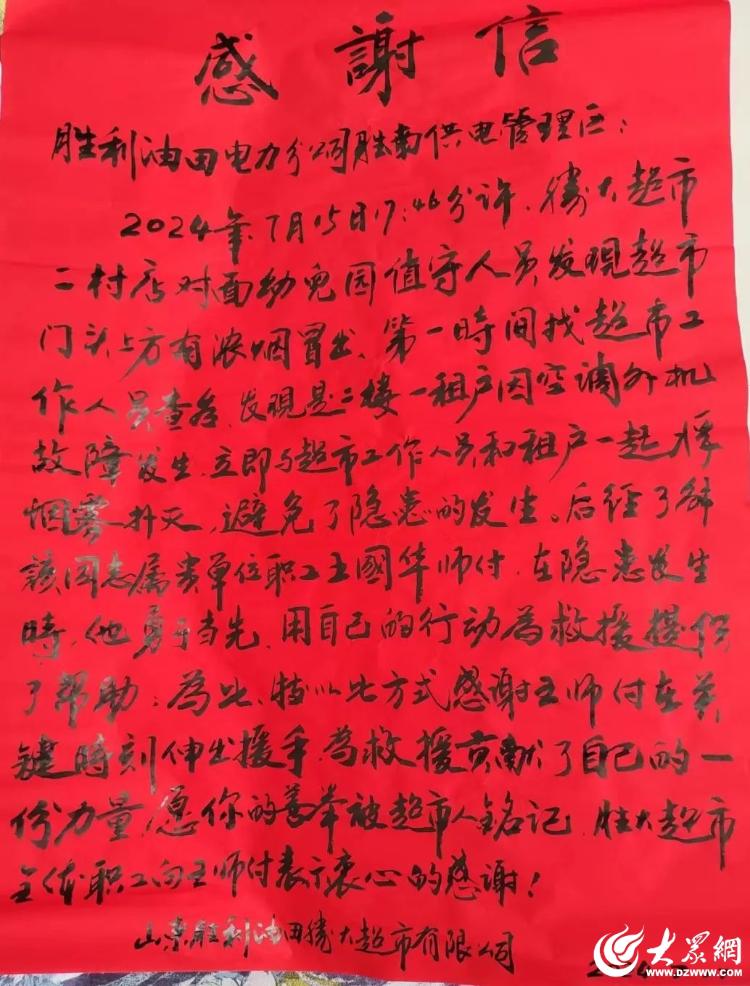 感謝信
胜利油田电力分公司胜南供电管理区：
2024年7月15日17:46分许、勝大超市
二村店对面幼兒园值守人员发現超市
门头上方有浓烟冒出、第一時间找超市工
作人员查看、发現是二楼一租户因空调外机
故障发生、立即与超市工作人员和租户一起将
烟雾扑灭、避免了隐患的发生。后经了解
該同志属贵单位职工王國华师付、在隐患发生
時、他勇于当先、用自己的行动為救援提供
了帮助；為此、特以此方式感謝王师付在关
键時刻伸出援手、為救援贡献了自己的一
份力量、愿你的善举被超市人銘记、胜大超市
全体职工向王师付表示衷心的感谢！
山东胜利油田勝大超市有限公司
2024
大眾網
WWW.DZWWW.COM